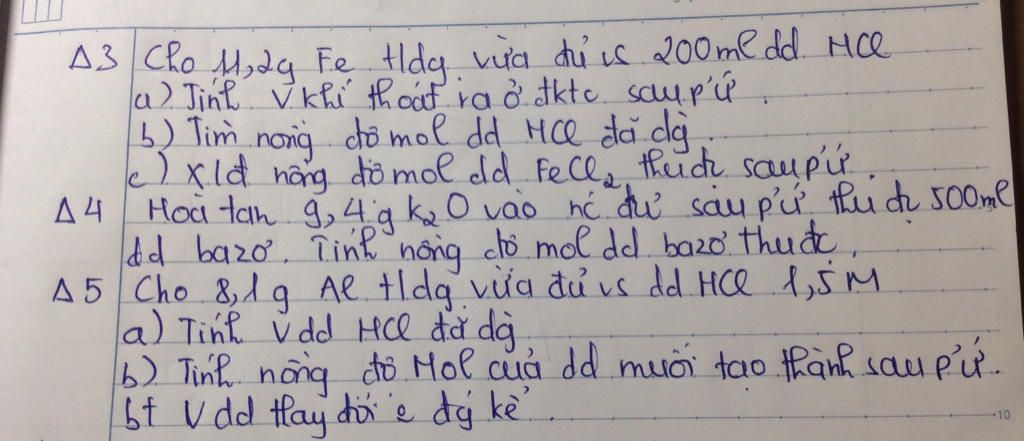 Δ3 Cho 11,2g Fe tldg vừa đủ vs 200ml dd HCl
a) Tính V khí thoát ra ở đktc sau p'ứ.
b) Tìm nồng độ mol dd HCl đã dg̀.
c) Xlđ nồng độ mol dd FeCl2 thu đc sau p'ứ.
Δ4 Hoà tan 9,4g K2O vào nc dư sau p'ứ thu đc 500ml
dd bazơ. Tính nồng độ mol dd bazơ thu đc.
Δ5 Cho 8,1g Al tldg vừa đủ vs dd HCl 1,5M
a) Tính Vdd HCl đã dg̀
b) Tính nồng độ Mol của dd muối tạo thành sau p'ứ.
bt Vdd thay đổi e đg kể.
10